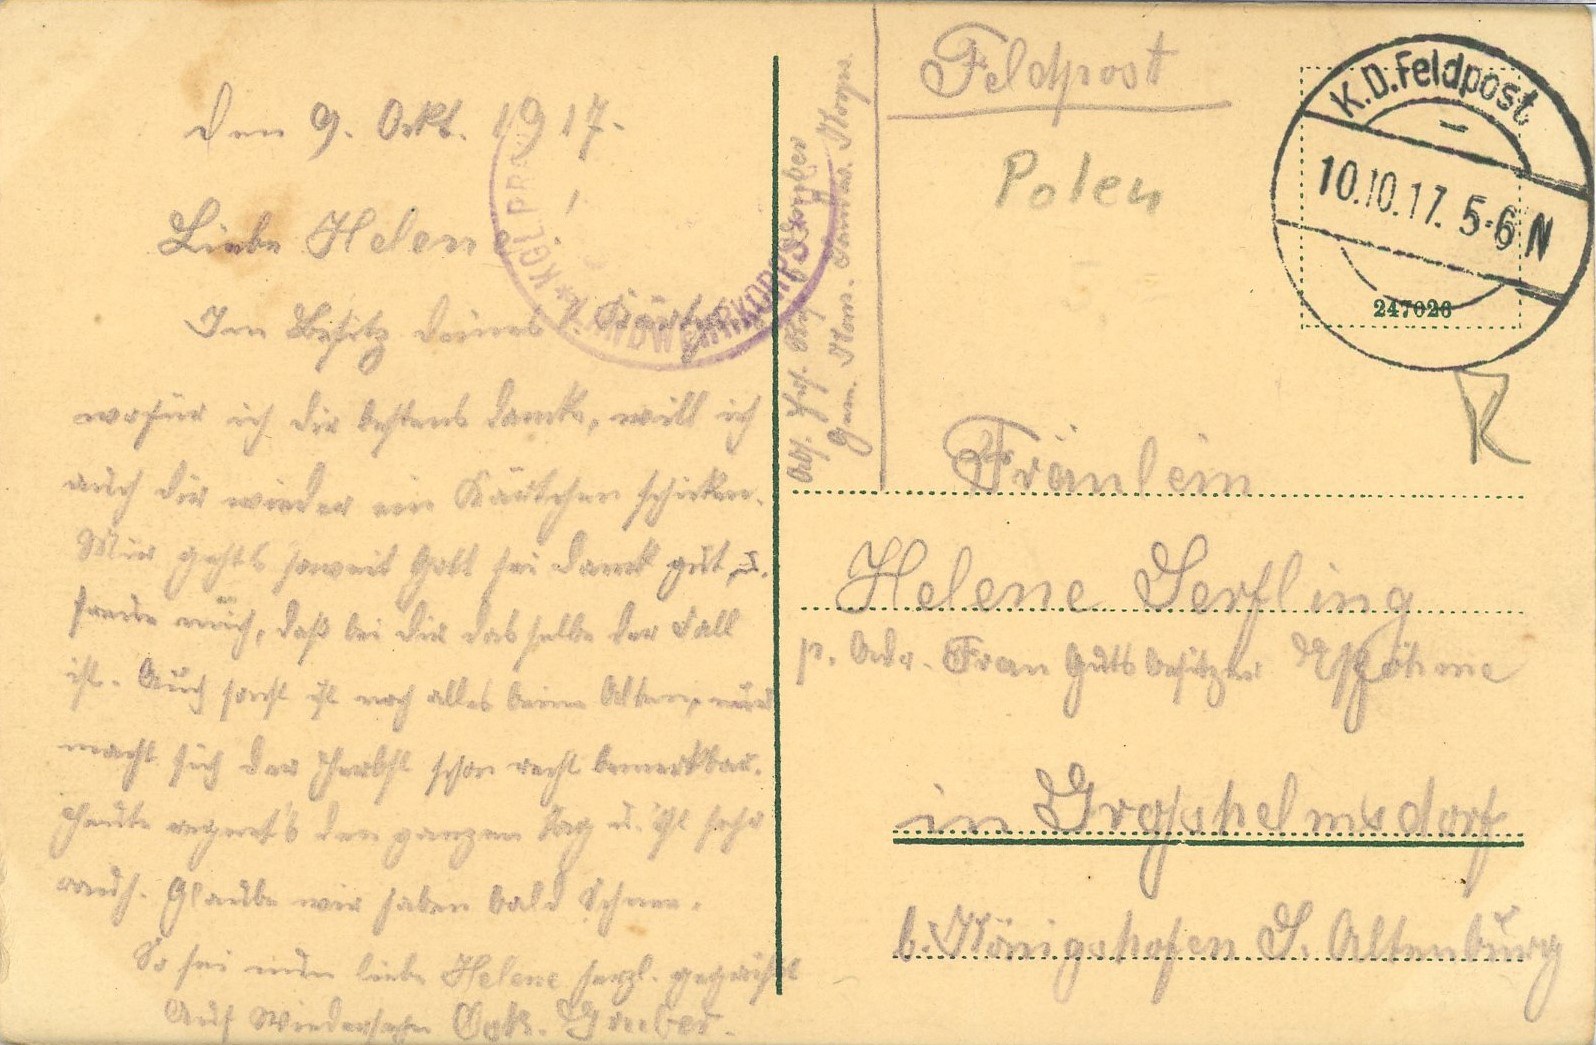 den 9. Okt. 1917.
Liebe Helene
Im Besitz deines l. Karte
wofür ich dir bestens danke, will ich
auch dir wieder ein Kärtchen schicken.
Mir gehts soweit Gott sei dank gut, u.
freue mich, daß bei dir dasselbe der Fall
ist. Auch sonst ist noch alles beim Alten, nur
macht sich der Herbst schon recht bemerkbar.
Heute regnet's den ganzen Tag u. ist sehr
rauh. Glaube wir haben bald Schnee.
So sei nun liebe Helene herzl. gegrüßt
Auf Wiedersehn Gruber.
* KGL. PR. LANDWEHRKORPS
Abs.
Landw. Korps.
Feldpost
Polen
K.D. Feldpost
10.10.17. 5-6 N
247026
R
Fräulein
Helene Serfling
p. Adr. Frau Gutsbesitzer Böhme
in Grosshelmsdorf
b. Königshofen S. Altenburg